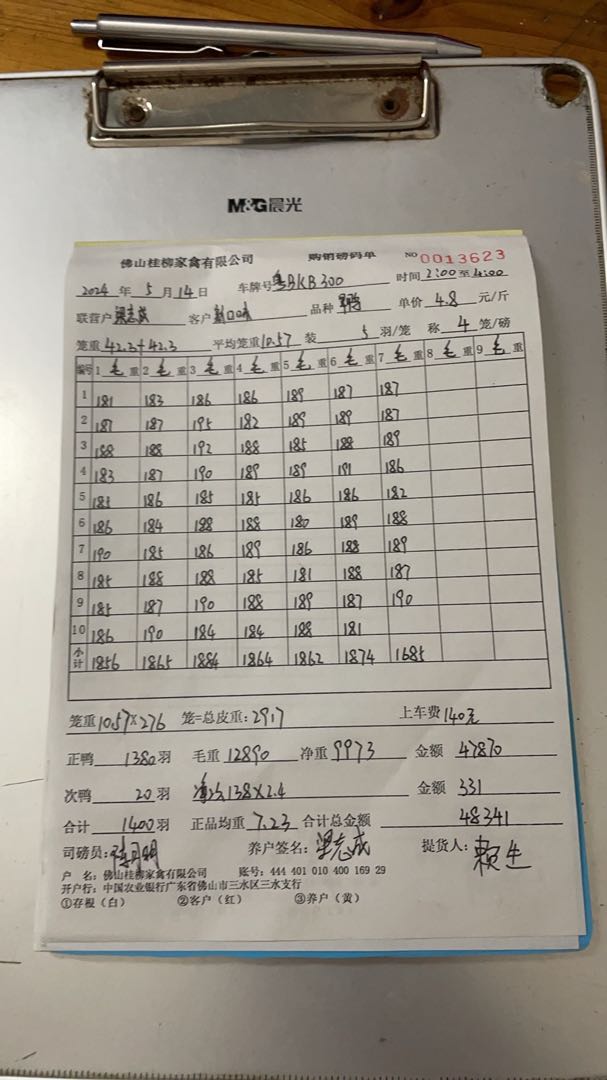 M&G晨光
佛山桂柳家禽有限公司 购销磅码单 NO 0013623
2024 年 5 月 14 日 车牌号 粤BKB300 时间 2:00 至 4:00
联营户 梁志成 客户 新口味 品种 单价 4.8 元/斤
笼重 42.3+42.3 平均笼重 10.57 装 5 羽/笼 称 4 笼/磅
编号 1 毛 重 2 毛 重 3 毛 重 4 毛 重 5 毛 重 6 毛 重 7 毛 重 8 毛 重 9 毛 重
1 181 183 186 186 189 187 187
2 187 187 195 182 189 189 187
3 188 188 192 188 185 188 189
4 183 187 190 189 189 191 186
5 185 186 185 185 186 186 182
6 186 184 188 188 180 189 188
7 190 185 186 189 186 188 189
8 185 188 188 185 181 188 187
9 185 187 190 188 189 187 190
10 186 190 184 184 188 181
小计 1856 1865 1884 1864 1862 1874 1685
笼重 10.57×276 笼=总皮重: 2917 上车费 140元
正鸭 1380 羽 毛重 12890 净重 9973 金额 47870
次鸭 20 羽 138×2.4 金额 331
合计 1400 羽 正品均重 7.23 合计总金额 48341
司磅员: 养户签名: 梁志成 提货人: 赖生
户 名: 佛山桂柳家禽有限公司 账号: 444 401 010 400 169 29
开户行: 中国农业银行广东省佛山市三水区三水支行
①存根（白） ②客户（红） ③养户（黄）